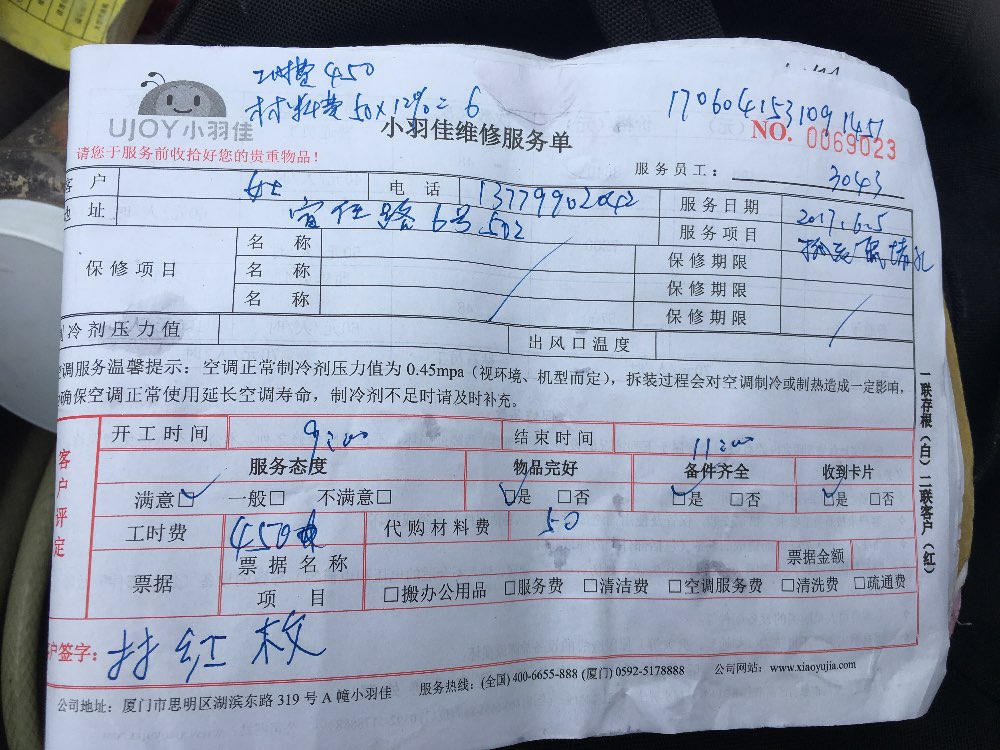 工时费 450
材料费 50×12%= 6
17060415310911451
UJOY小羽佳
小羽佳维修服务单
NO. 0069023
请您于服务前收拾好您的贵重物品！
服务员工： 3043
客户 女士 电话 13779902042 服务日期 2017.6.5
地址 6号502 服务项目
保修项目 名称 保修期限
名称 保修期限
名称 保修期限
制冷剂压力值 出风口温度
空调服务温馨提示：空调正常制冷剂压力值为 0.45mpa（视环境、机型而定），拆装过程会对空调制冷或制热造成一定影响，
确保空调正常使用延长空调寿命，制冷剂不足时请及时补充。
一联存根（白）二联客户（红）
客户评定
开工时间 9:00 结束时间 11:00
服务态度 物品完好 备件齐全 收到卡片
满意□ 一般□ 不满意□ □是 □否 □是 □否 □是 □否
工时费 450 代购材料费 50
票据 票据名称 票据金额
项目 □搬办公用品 □服务费 □清洁费 □空调服务费 □清洗费 □疏通费
客户签字： 红枚
公司地址：厦门市思明区湖滨东路 319 号 A 幢小羽佳 服务热线：(全国) 400-6655-888 (厦门) 0592-5178888 公司网站：www.xiaoyujia.com